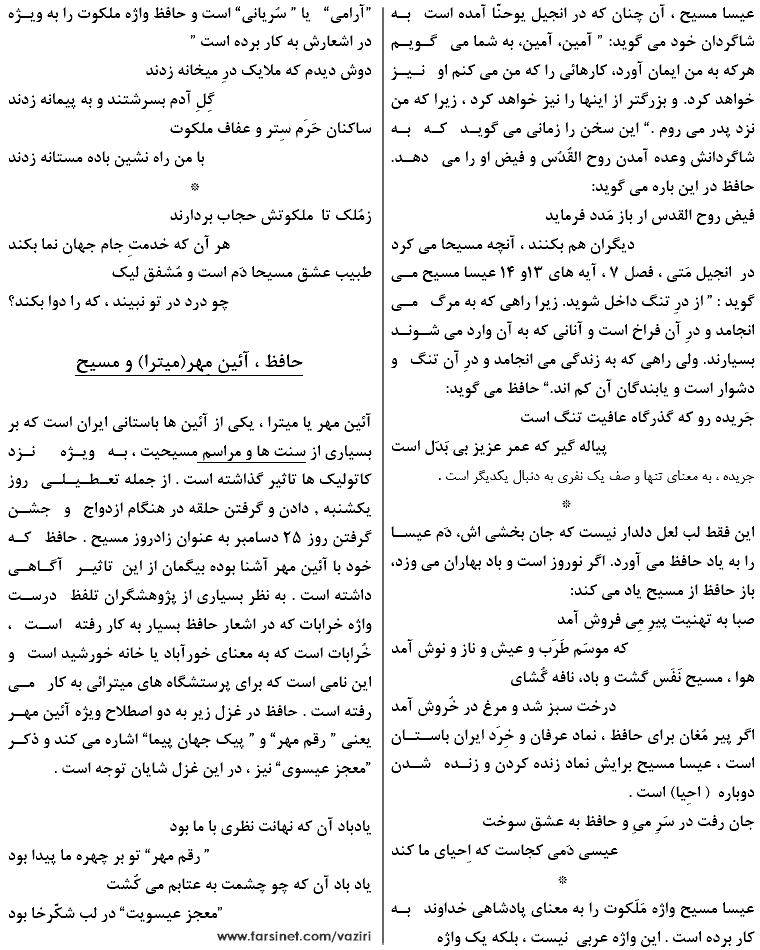 عیسا مسیح ، آن چنان که در انجیل یوحنّا آمده است به
شاگردان خود می گوید: ” آمین، آمین، به شما می گـویـم
هرکه به من ایمان آورد، کارهائی را که من می کنم او نـیـز
خواهد کرد. و بزرگتر از اینها را نیز خواهد کرد ، زیرا که من
نزد پدر می روم .“ این سخن را زمانی می گویـد کـه بـه
شاگردانش وعده آمدن روح القُدُس و فیض او را می دهـد.
حافظ در این باره می گوید:
فیض روح القدس ار باز مَدد فرماید
دیگران هم بکنند ، آنچه مسیحا می کرد
در انجیل مَتی ، فصل ۷ ، آیه های ۱۳و ۱۴ عیسا مسیح مـی
گوید : ” از درِ تنگ داخل شوید. زیرا راهی که به مرگ مـی
انجامد و درِ آن فراخ است و آنانی که به آن وارد می شـونـد
بسیارند. ولی راهی که به زندگی می انجامد و درِ آن تنگ و
دشوار است و یابندگان آن کم اند.“ حافظ می گوید:
جَریده رو که گذرگاه عافیت تنگ است
پیاله گیر که عمر عزیز بی بَدَل است
جریده ، به معنای تنها و صف یک نفری به دنبال یکدیگر است .
*
این فقط لب لعل دلدار نیست که جان بخشی اش، دَم عیسـا
را به یاد حافظ می آورد. اگر نوروز است و باد بهاران می وزد،
باز حافظ از مسیح یاد می کند:
صبا به تهنیت پیرِ مِی فروش آمد
که موسَم طَرَب و عیش و ناز و نوش آمد
هوا ، مسیح نَفَس گشت و باد، نافه گُشای
درخت سبز شد و مرغ در خُروش آمد
اگر پیر مُغان برای حافظ ، نماد عرفان و خِرَد ایران باسـتـان
است ، عیسا مسیح برایش نماد زنده کردن و زنـده شـدن
دوباره ( احیا) است .
جان رفت در سَرِ مِی و حافظ به عشق سوخت
عیسی دَمی کجاست که اِحیای ما کند
*
عیسا مسیح واژه مَلَکوت را به معنای پادشاهی خداوند بـه
کار برده است . این واژه عربی نیست ، بلکه یک واژه
”آرامی“ یا ” سُریانی“ است و حافظ واژه ملکوت را به ویـژه
در اشعارش به کار برده است ”
دوش دیدم که ملایک درِ میخانه زدند
گِلِ آدم بسرشتند و به پیمانه زدند
ساکنان حَرَم سِتر و عفاف ملکوت
با من راه نشین باده مستانه زدند
*
زمُلک تا ملکوتش حجاب بردارند
هر آن که خدمتِ جام جهان نما بکند
طبیب عشق مسیحا دَم است و مُشفق لیک
چو درد در تو نبیند ، که را دوا بکند؟
حافظ ، آئین مِهر(میترا) و مسیح
آئین مهر یا میترا ، یکی از آئین ها باستانی ایران است که بر
بسیاری از سنت ها و مراسم مسیحیت ، بـه ویـژه نـزد
کاتولیک ها تاثیر گذاشته است . از جمله تعـطـیـلـی روز
یکشنبه , دادن و گرفتن حلقه در هنگام ازدواج و جـشـن
گرفتن روز ۲۵ دسامبر به عنوان زادروز مسیح . حافظ کـه
خود با آئین مهر آشنا بوده بیگمان از این تاثیـر آگـاهـی
داشته است . به نظر بسیاری از پژوهشگران تلفظ درسـت
واژه خرابات که در اشعار حافظ بسیار به کار رفته اسـت ،
خُرابات است که به معنای خورآباد یا خانه خورشید است و
این نامی است که برای پرستشگاه های میترائی به کار مـی
رفته است . حافظ در غزل زیر به دو اصطلاح ویژه آئین مهـر
یعنی ” رقم مهر“ و ” پیک جهان پیما“ اشاره می کند و ذکـر
”معجز عیسوی“ نیز ، در این غزل شایان توجه است .
یادباد آن که نهانت نظری با ما بود
” رقم مهر“ تو بر چهره ما پیدا بود
یاد باد آن که چو چشمت به عتابم می کُشت
”معجز عیسویت“ در لب شکّرخا بود
www.farsinet.com/vaziri